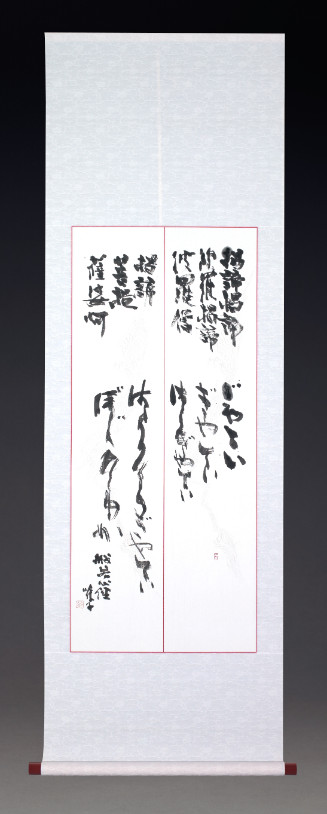 揭諦揭諦
波羅揭諦
波羅僧
揭諦
菩提
薩婆呵
ぎやてい
ぎやてい
はらぎやてい
はらそうぎやてい
ぼじそわか